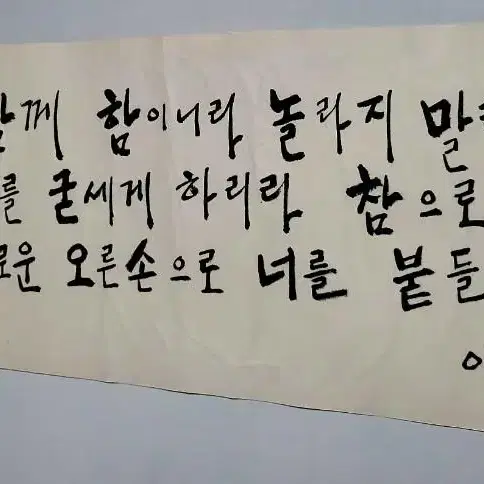 함께 함이니라 놀라지 말라
를 굳세게 하리라 참으로
로운 오른손으로 너를 붙들